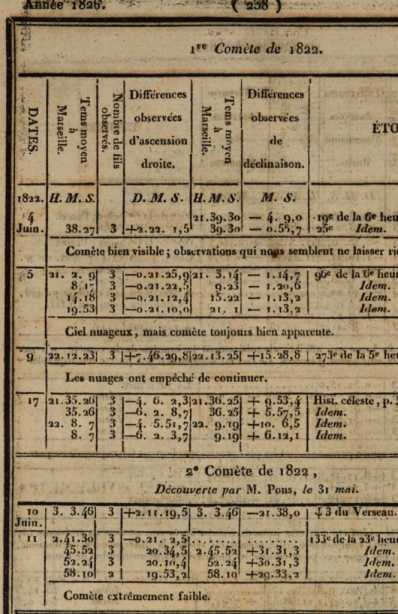 Année 1826. ( 258 )
1re Comète de 1822.
DATES. Tems moyen à Marseille. Nombre de fils observés. Différences observées d'ascension droite. Tems moyen à Marseille. Différences observées de déclinaison. ÉTO
1822. H. M. S. D. M. S. H. M. S. M. S.
4 21.39.30 — 4. 9,0 19e de la 6e heu
Juin. 38.27 3 +2.22. 1,5 39.30 — 0.55,7 25e Idem.
Comète bien visible; observations qui nous semblent ne laisser rie
5 21. 2. 9 3 —0.21.25,9 21. 3.14 — 1.14,7 96e de la 6e heur
8.17 3 —0.21.22,5 9.23 — 1.20,6 Idem.
14.18 3 —0.21.12,4 15.22 — 1.13,2 Idem.
19.53 3 —0.21.10,0 21. 1 — 1.13,2 Idem.
Ciel nuageux, mais comète toujours bien apparente.
9 22.12.23 3 +7.46.29,8 22.13.25 +15.28,8 273e de la 5e heu
Les nuages ont empéché de continuer.
17 21.35.26 3 —4. 6. 2,3 21.36.25 + 9.53,4 Hist. céleste, p.
35.26 3 —6. 2. 8,7 36.25 + 5.57,5 Idem.
22. 8. 7 3 —4. 5.51,7 22. 9.19 +10. 6,5 Idem.
8. 7 3 —6. 2. 3,7 9.19 + 6.12,1 Idem.
2e Comète de 1822,
Découverte par M. Pons, le 31 mai.
10 3. 3.46 3 +2.11.19,5 3. 3.46 —21.38,0 3 du Verseau.
Juin.
11 2.41.30 3 —0.21. 2,5 ........ ........ 133e de la 23e heur
45.52 3 20.34,5 2.45.52 +31.31,3 Idem.
52.24 3 20.10,4 52.24 +30.31,3 Idem.
58.10 2 19.53,2 58.10 +29.33,2 Idem.
Comète extrémement faible.